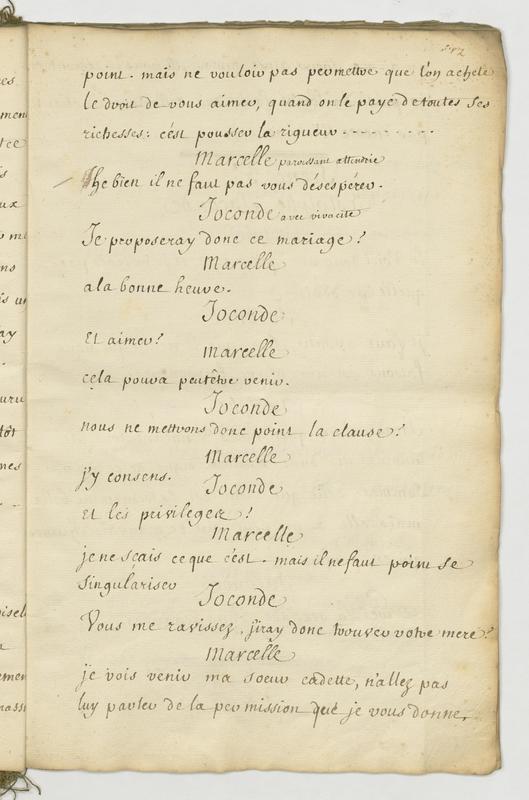 point. mais ne vouloir pas permettre que l'on achete
le droit de vous aimer, quand on le paye de toutes ses
richesses: c'est pousser la rigueur - - - - - - - - -
Marcelle paroissant attendrie
he bien il ne faut pas vous désespérer.
Joconde avec vivacité
Je proposeray donc ce mariage?
Marcelle
a la bonne heure.
Joconde
Et aimer?
Marcelle
cela poura peutêtre venir.
Joconde
nous ne mettrons donc point la clause?
Marcelle
j'y consens.
Joconde
et les privileges?
Marcelle
je ne sçais ce que c'est. mais il ne faut point se
singulariser
Joconde
Vous me ravissez, j'iray donc trouver votre mere?
Marcelle
je vois venir ma soeur cadette, n'allez pas
luy parler de la permission que je vous donne,